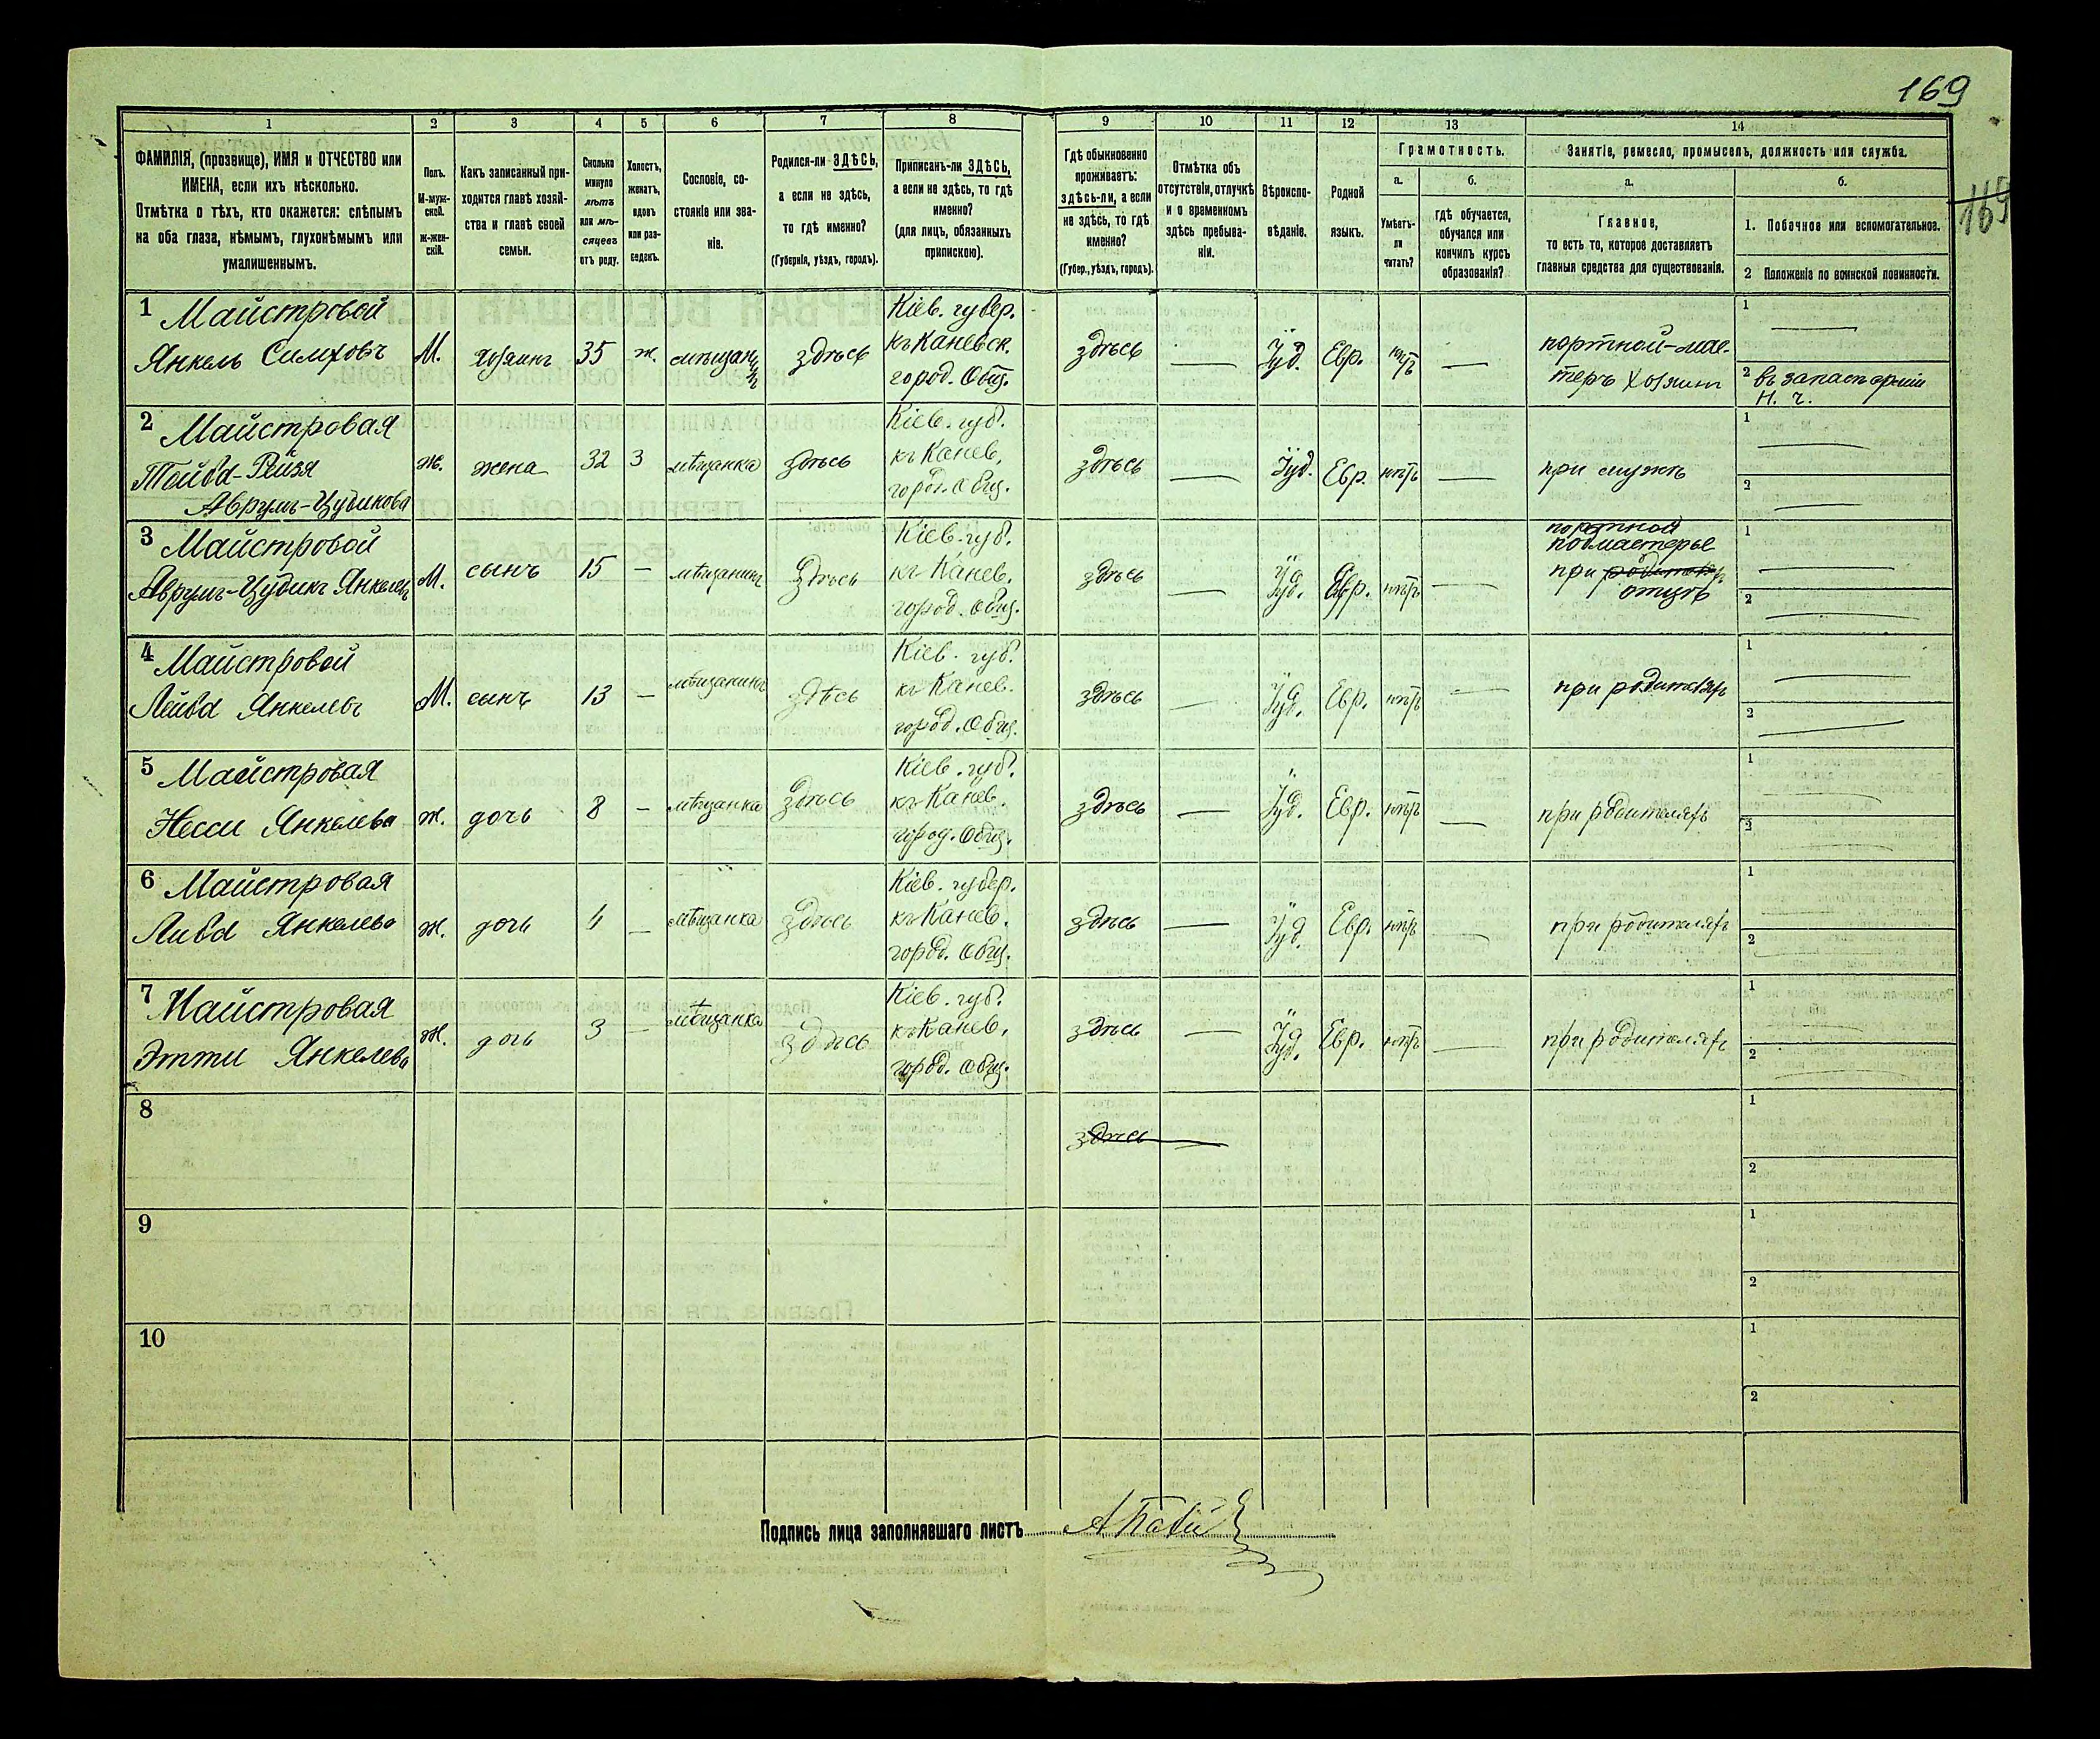 169
169
1 2 3 4 5 6 7 8 9 10 11 12 13 14
ФАМИЛІЯ, (прозвище), ИМЯ и ОТЧЕСТВО или
ИМЕНА, если ихъ нѣсколько.
Отмѣтка о тѣхъ, кто окажется: слѣпымъ
на оба глаза, нѣмымъ, глухонѣмымъ или
умалишеннымъ.
Полъ.
М-муж-
ской.
Ж-жен-
скій.
Какъ записанный при-
ходится главѣ хозяй-
ства и главѣ своей
семьи.
Сколько
минуло
лѣтъ
или мѣ-
сяцевъ
отъ роду.
Холостъ,
женатъ,
вдовъ
или раз-
веденъ.
Сословіе, со-
стояніе или зва-
ніе.
Родился-ли ЗДѢСЬ,
а если не здѣсь,
то гдѣ именно?
(Губернія, уѣздъ, городъ).
Приписанъ-ли ЗДѢСЬ,
а если не здѣсь, то гдѣ
именно?
(для лицъ, обязанныхъ
припискою).
Гдѣ обыкновенно
проживаетъ:
здѣсь-ли, а если
не здѣсь, то гдѣ
именно?
(Губер., уѣздъ, городъ).
Отмѣтка объ
отсутствіи, отлучкѣ
и о временномъ
здѣсь пребыва-
ніи.
Вѣроиспо-
вѣданіе.
Родной
языкъ.
Грамотность.
а.
Умѣетъ-
ли
читать?
б.
гдѣ обучается,
обучался или
кончилъ курсъ
образованія?
Занятіе, ремесло, промыселъ, должность или служба.
а.
Главное,
то есть то, которое доставляетъ
главныя средства для существованія.
б.
1. Побочное или вспомогательное.
2 Положеніе по воинской повинности.
1 Майстровой
Янкель Симховъ
М. хозяинъ 35 ж. мѣщанинъ здѣсь
Кіев. губер.
къ Каневск.
город. Общ.
здѣсь — Іуд. Евр. нѣтъ —
портной-мас-
теръ хозяинъ
1 —
2 въ запасѣ арміи
н. ч.
2 Майстровая
Тойба-Рейзя
Аврумъ-Цудикова
ж. жена 32 З мѣщанка здѣсь
Кіев. губ.
къ Канев.
город. Общ.
здѣсь — Іуд. Евр. нѣтъ —
при мужѣ
1 —
2 —
3 Майстровой
Аврумъ-Цудикъ Янкелевъ
М. сынъ 15 — мѣщанинъ здѣсь
Кіев. губ.
къ Канев.
город. Общ.
здѣсь — Іуд. Евр. нѣтъ —
портной
подмастерье
при родителяхъ
отцѣ
1 —
2 —
4 Майстровой
Лейба Янкелевъ
М. сынъ 13 — мѣщанинъ здѣсь
Кіев. губ.
къ Канев.
город. Общ.
здѣсь — Іуд. Евр. нѣтъ —
при родителяхъ
1 —
2 —
5 Майстровая
Несси Янкелева
ж. дочь 8 — мѣщанка здѣсь
Кіев. губ.
къ Канев.
город. Общ.
здѣсь — Іуд. Евр. нѣтъ —
при родителяхъ
1 —
2 —
6 Майстровая
Либа Янкелева
ж. дочь 4 — мѣщанка здѣсь
Кіев. губер.
къ Канев.
город. Общ.
здѣсь — Іуд. Евр. нѣтъ —
при родителяхъ
1 —
2 —
7 Майстровая
Этти Янкелева
ж. дочь 3 — мѣщанка здѣсь
Кіев. губ.
къ Канев.
город. Общ.
здѣсь — Іуд. Евр. нѣтъ —
при родителяхъ
1 —
2 —
8
здѣсь
1
2
9
1
2
10
1
2
Подпись лица заполнявшаго листъ